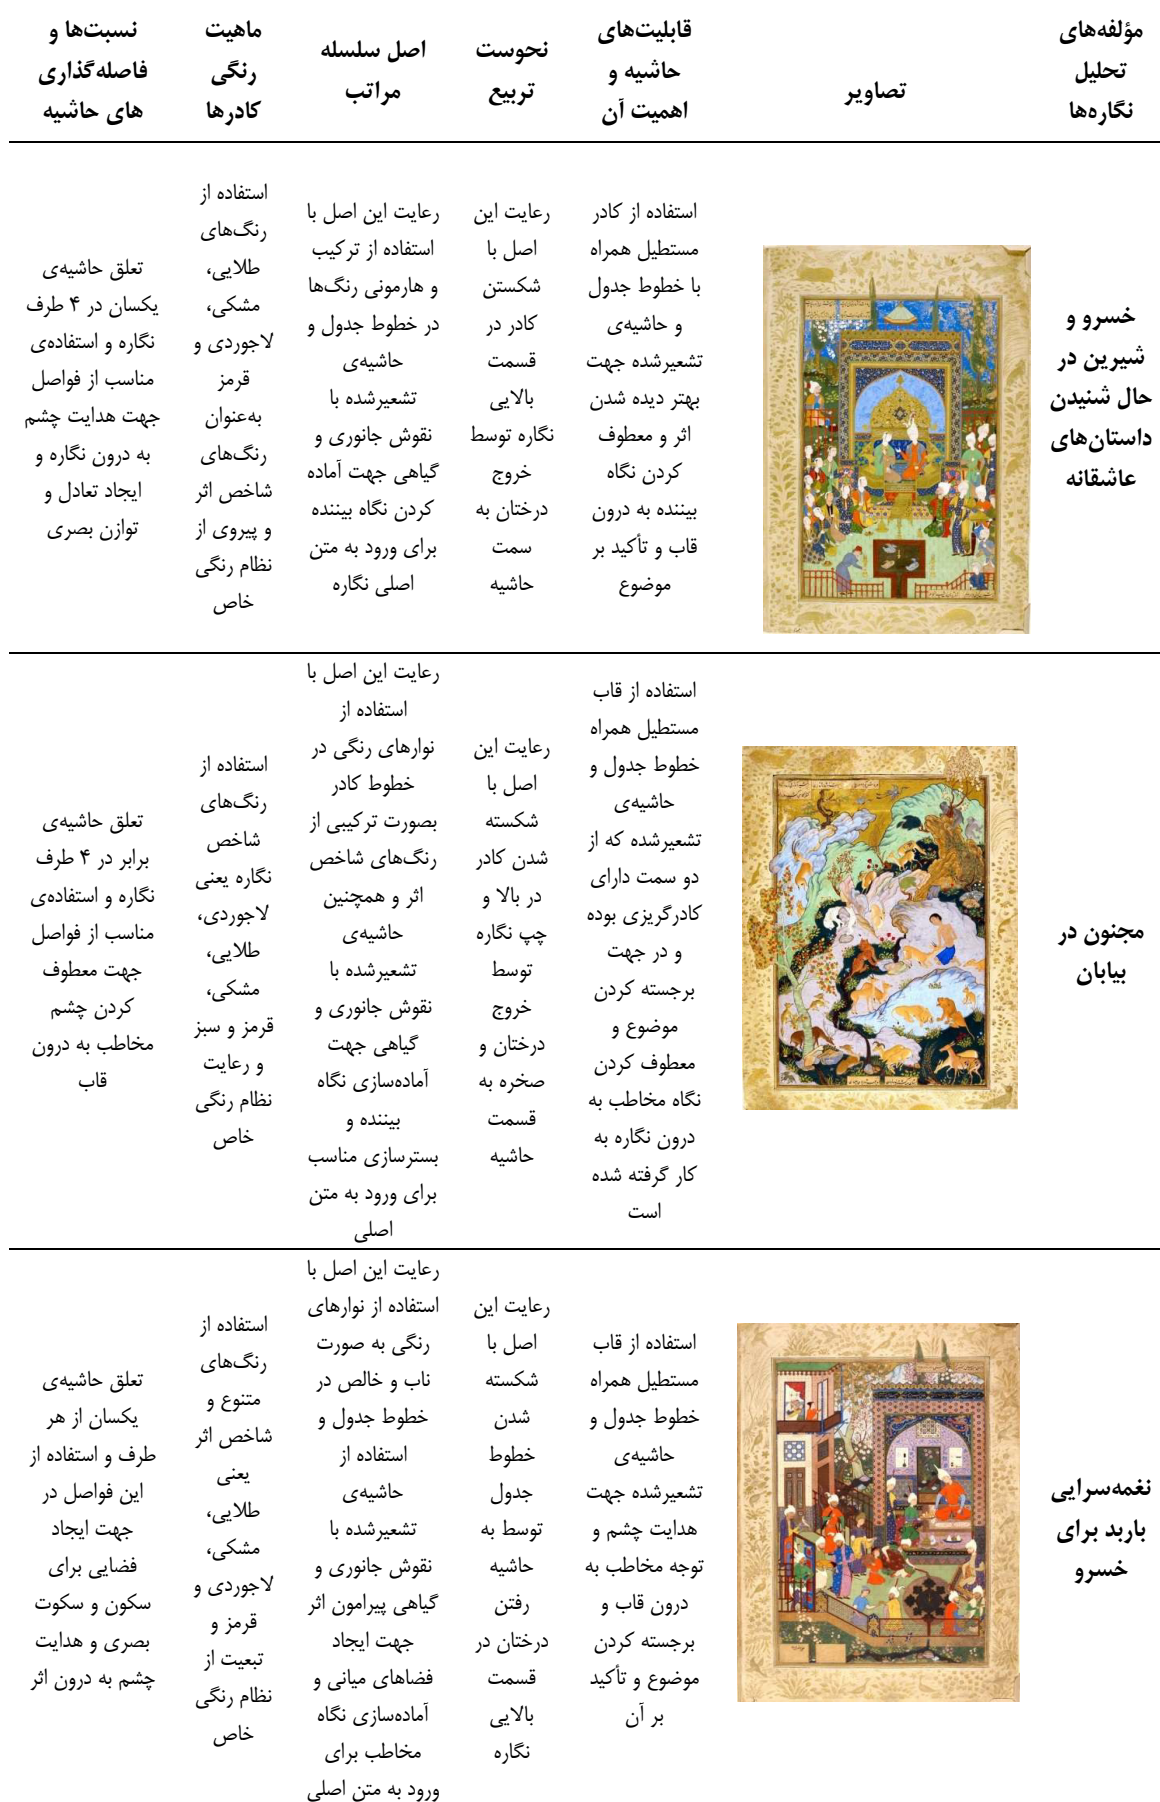 مؤلفه‌های
تحلیل
نگاره‌ها
تصاویر
قابلیت‌های
حاشیه و
اهمیت آن
نحوست
تربیع
اصل سلسله
مراتب
ماهیت
رنگی
کادرها
نسبت‌ها و
فاصله‌گذاری
های حاشیه
خسرو و
شیرین در
حال شنیدن
داستان‌های
عاشقانه
استفاده از کادر
مستطیل همراه
با خطوط جدول
و حاشیه‌ی
تشعیرشده جهت
بهتر دیده شدن
اثر و معطوف
کردن نگاه
بیننده به درون
قاب و تأکید بر
موضوع
رعایت این
اصل با
شکستن
کادر در
قسمت
بالایی
نگاره توسط
خروج
درختان به
سمت
حاشیه
رعایت این اصل با
استفاده از ترکیب
و هارمونی رنگ‌ها
در خطوط جدول و
حاشیه‌ی
تشعیرشده با
نقوش جانوری و
گیاهی جهت آماده
کردن نگاه بیننده
برای ورود به متن
اصلی نگاره
استفاده از
رنگ‌های
طلایی،
مشکی،
لاجوردی و
قرمز
به‌عنوان
رنگ‌های
شاخص اثر
و پیروی از
نظام رنگی
خاص
تعلق حاشیه‌ی
یکسان در ۴ طرف
نگاره و استفاده‌ی
مناسب از فواصل
جهت هدایت چشم
به درون نگاره و
ایجاد تعادل و
توازن بصری
مجنون در
بیابان
استفاده از قاب
مستطیل همراه
خطوط جدول و
حاشیه‌ی
تشعیرشده که از
دو سمت دارای
کادرگریزی بوده
و در جهت
برجسته کردن
موضوع و
معطوف کردن
نگاه مخاطب به
درون نگاره به
کار گرفته شده
است
رعایت این
اصل با
شکسته
شدن کادر
در بالا و
چپ نگاره
توسط
خروج
درختان و
صخره به
قسمت
حاشیه
رعایت این اصل با
استفاده از
نوارهای رنگی در
خطوط کادر
بصورت ترکیبی از
رنگ‌های شاخص
اثر و همچنین
حاشیه‌ی
تشعیرشده با
نقوش جانوری و
گیاهی جهت
آماده‌سازی نگاه
بیننده و
بسترسازی مناسب
برای ورود به متن
اصلی
استفاده از
رنگ‌های
شاخص
نگاره یعنی
لاجوردی،
طلایی،
مشکی،
قرمز و سبز
و رعایت
نظام رنگی
خاص
تعلق حاشیه‌ی
برابر در ۴ طرف
نگاره و استفاده‌ی
مناسب از فواصل
جهت معطوف
کردن چشم
مخاطب به درون
قاب
نغمه‌سرایی
باربد برای
خسرو
استفاده از قاب
مستطیل همراه
خطوط جدول و
حاشیه‌ی
تشعیرشده جهت
هدایت چشم و
توجه مخاطب به
درون قاب و
برجسته کردن
موضوع و تأکید
بر آن
رعایت این
اصل با
شکسته
شدن
خطوط
جدول
توسط به
حاشیه
رفتن
درختان در
قسمت
بالایی
نگاره
رعایت این اصل با
استفاده از نوارهای
رنگی به صورت
ناب و خالص در
خطوط جدول و
استفاده از
حاشیه‌ی
تشعیرشده با
نقوش جانوری و
گیاهی پیرامون اثر
جهت ایجاد
فضاهای میانی و
آماده‌سازی نگاه
مخاطب برای
ورود به متن اصلی
استفاده از
رنگ‌های
متنوع و
شاخص اثر
یعنی
طلایی،
مشکی،
لاجوردی و
قرمز و
تبعیت از
نظام رنگی
خاص
تعلق حاشیه‌ی
یکسان از هر
طرف و استفاده از
این فواصل در
جهت ایجاد
فضایی برای
سکون و سکوت
بصری و هدایت
چشم به درون اثر